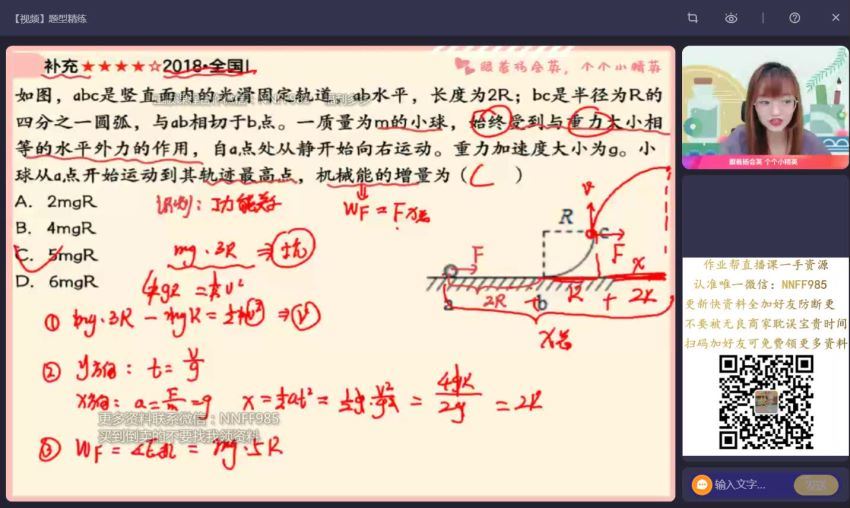 【视频】题型精练
补充★★★★☆2018·全国I
跟着杨会英，个个小精英
如图，abc是竖直面内的光滑固定轨道，ab水平，长度为2R；bc是半径为R的
四分之一圆弧，与ab相切于b点。一质量为m的小球，始终受到与重力大小相
等的水平外力的作用，自a点处从静开始向右运动。重力加速度大小为g。小
球从a点开始运动到其轨迹最高点，机械能的增量为（C）
A. 2mgR
B. 4mgR
C. 5mgR
D. 6mgR
识别：功能关系
W_F = F·x总
mg·3R ⇒
① mg·3R − mgR = ½mv² ⇒ v
② y方向：t = v/g
x方向：a = F/m = g  x = ½at² = ½g v²/g² = 4gR/2g = 2R
③ W_F = ΔE机 = mg·5R
R
v
c
F
F
x
a
2R
b
R + 2R
x总
更多资料联系微信：NNFF985
买到倒卖的不要找我领资料
跟着杨会英 个个小精英
作业帮直播课一手资源
认准唯一微信：NNFF985
更新快资料全加好友防断更
不要被无良商家耽误宝贵时间
扫码加好友可免费领更多资料
输入文字...
发送